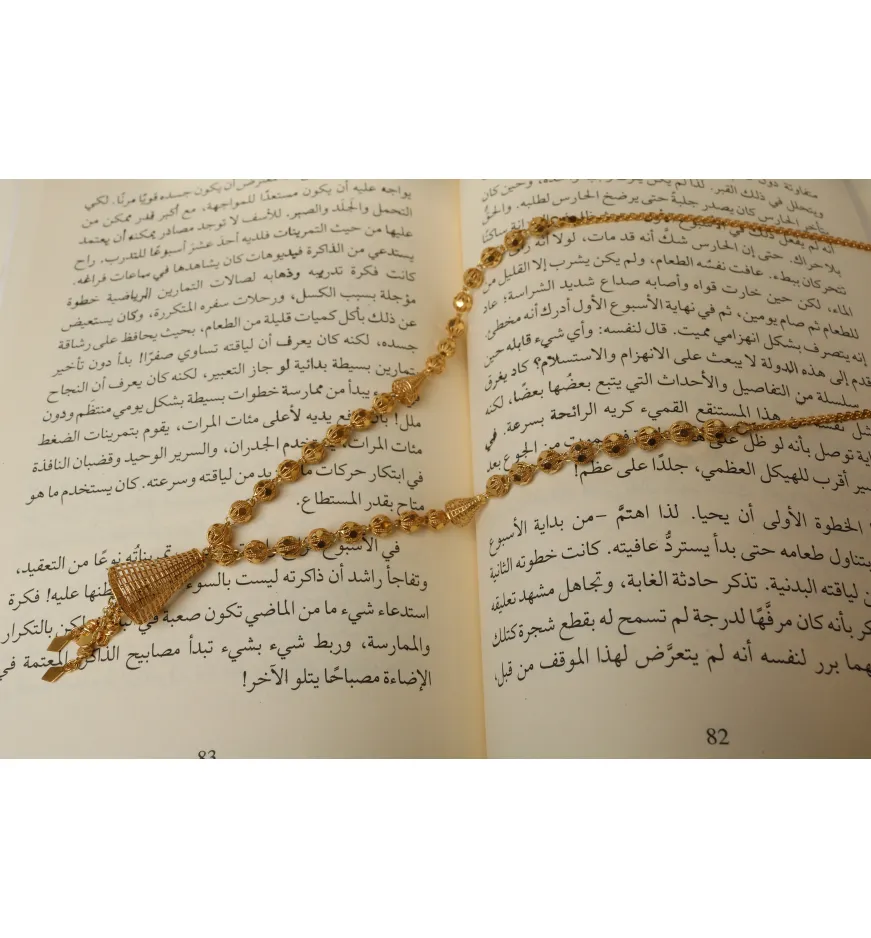 متفاوتة دون
ويتحلل في ذلك القبر. لذا لم يكن
تأخر الحارس كان يصدر جلبةً حتى يرضخ الحارس لطلبه. والحق
أنه لم يفعل ذلك في
بلا حراك. حتى إن الحارس شكَّ أنه قد مات، لولا أنه
تتحركان ببطء. عافت نفسُه الطعام، ولم يكن يشرب إلا القليل من
الماء، لكن حين خارت قواه وأصابه صداع شديد الشراسة؛ عاد
للطعام ثم صام يومين، ثم في نهاية الأسبوع الأول أدرك أنه مخطئ
إنه يتصرف بشكل انهزامي مميت. قال لنفسه: وأي شيء قابله حين
قدم إلى هذه الدولة لا يبعث على الانهزام والاستسلام؟ كاد يغرق
سلسلة من التفاصيل والأحداث التي تتبع بعضُها بعضًا، لكنه
هذا المستنقع القميء كريه الرائحة بسرعة. في
توصل بأنه لو ظل على من الجوع بعد
أقرب للهيكل العظمي، جلدًا على عظم!
الخطوة الأولى أن يحيا. لذا اهتمَّ –من بداية الأسبوع
بتناول طعامه حتى بدأ يستردُّ عافيته. كانت خطوته الثانية
لياقته البدنية. تذكر حادثة الغابة، وتجاهل مشهد تعليقه
بأنه كان مرفَّهًا لدرجة لم تسمح له بقطع شجرة كتلك
برر لنفسه أنه لم يتعرَّض لهذا الموقف من قبل،
82
أن يكون جسده قويًا مرنًا. لكي
يواجه عليه أن يكون مستعدًا للمواجهة، مع أكبر قدر ممكن من
التحمل والجلَد والصبر. للأسف لا توجد مصادر يمكنه أن يعتمد
عليها من حيث التمرينات فلديه أحد عشر أسبوعًا للتدرب. راح
يستدعي من الذاكرة فيديوهات كان يشاهدها في ساعات فراغه.
كانت فكرة تدريبه وذهابه لصالات التمارين الرياضية خطوة
مؤجلة بسبب الكسل، ورحلات سفره المتكررة، وكان يستعيض
عن ذلك بأكل كميات قليلة من الطعام، بحيث يحافظ على رشاقة
جسده، لكنه كان يعرف أن لياقته تساوي صفرًا! بدأ دون تأخير
تمارين بسيطة بدائية لو جاز التعبير، لكنه كان يعرف أن النجاح
يبدأ من ممارسة خطوات بسيطة بشكل يومي منتظَم ودون
ملل! يديه لأعلى مئات المرات، يقوم بتمرينات الضغط
مئات المرات الجدران، والسرير الوحيد وقضبان النافذة
في ابتكار حركات من لياقته وسرعته. كان يستخدم ما هو
متاح بقدر المستطاع.
في نوعًا من التعقيد،
وتفاجأ راشد أن ذاكرته ليست بالسوء عليه! فكرة
استدعاء شيء ما من الماضي تكون صعبة في بالتكرار
والممارسة، وربط شيء بشيء تبدأ مصابيح المعتمة في
الإضاءة مصباحًا يتلو الآخر!
83